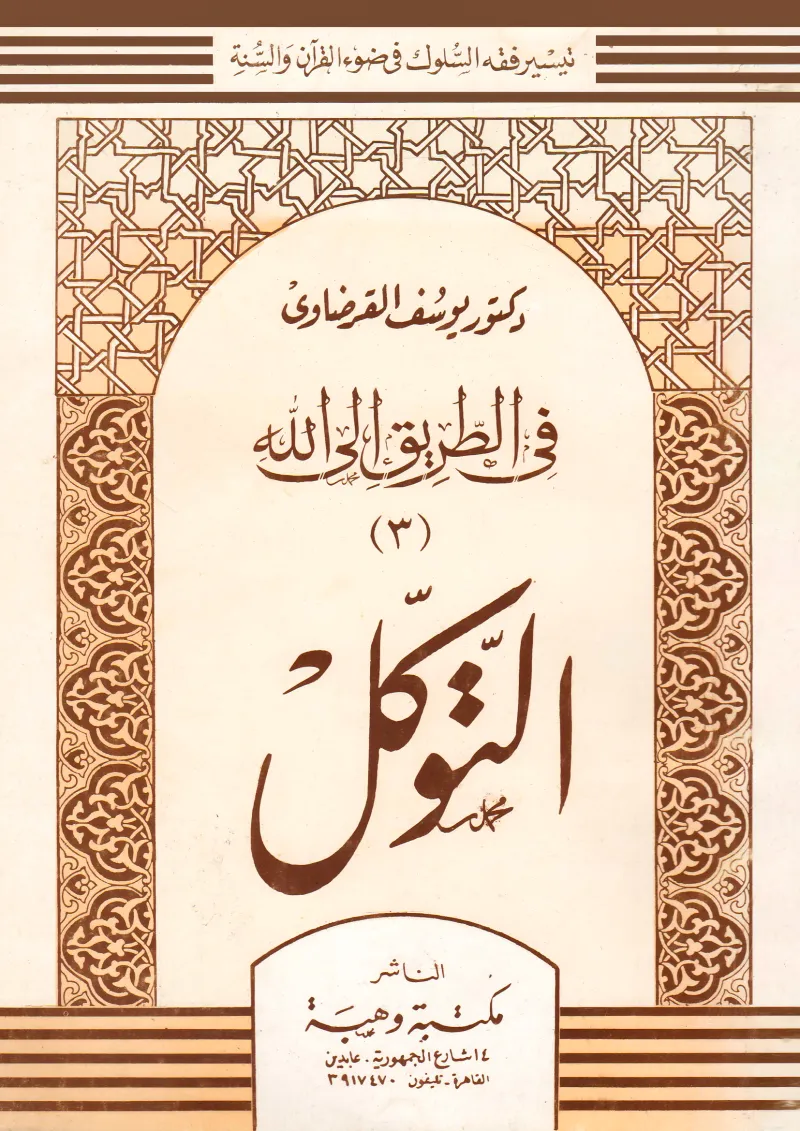 تيسير فقه السُّلوك في ضوء القرآن وَالسُّنة
دكتور يوسُف القرضاوى
في الطَّرِيقِ إِلى اللهِ
(٣)
التَّوكّل
الناشر
مكتبة وهبَة
١٤ شارع الجمهورية ـ عابدين
القاهرة ـ تليفون ٣٩١٧٤٧٠